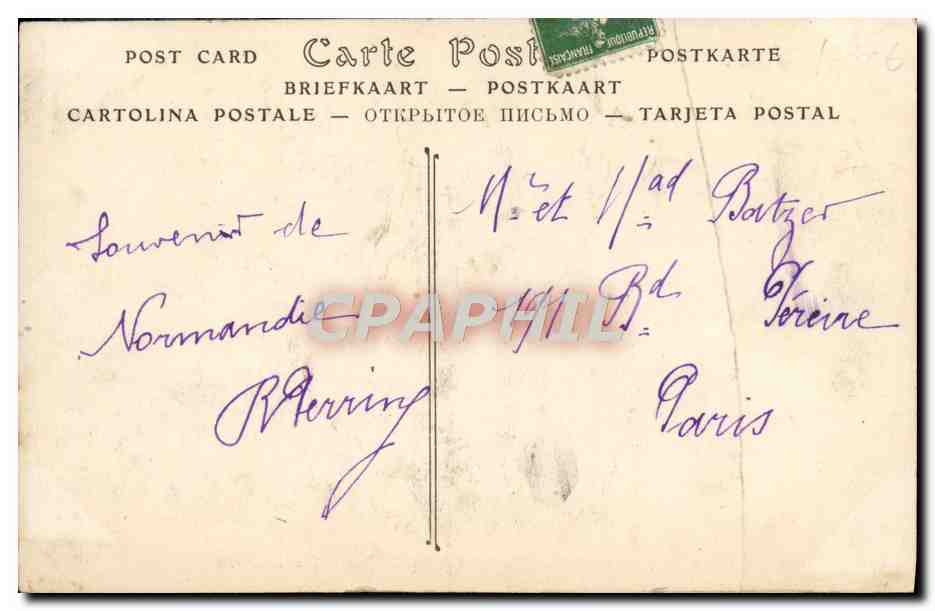 POST CARD Carte Post POSTKARTE
BRIEFKAART — POSTKAART
CARTOLINA POSTALE — ОТКРЫТОЕ ПИСЬМО — TARJETA POSTAL
REPUBLIQUE FRANÇAISE
Souvenir de
Normandie
RPerring
Mr et Mad Batzer
191 Bd Péreire
Paris
CPAPHIL